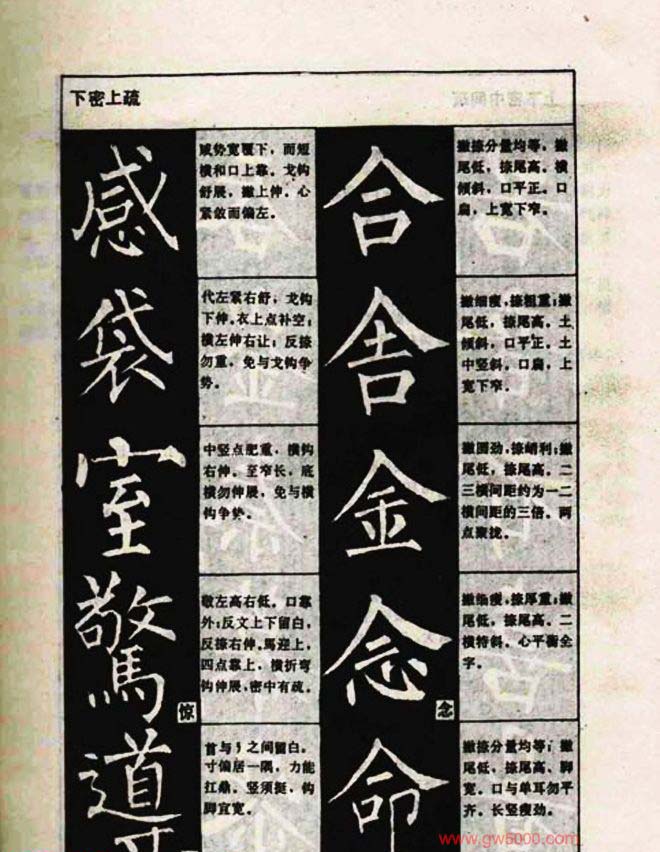 下密上疏
感
咸势宽覆下，而短
横和口上靠。戈钩
舒展，撇上伸。心
紧敛而偏左。
袋
代左紧右舒，戈钩
下伸。衣上点补空；
横左伸右让；反捺
勿重，免与戈钩争
势。
室
中竖点肥重，横钩
右伸。至窄长，底
横勿伸展，免与横
钩争势。
驚
惊
敬左高右低。口靠
外；反文上下留白，
反捺右伸。馬迎上，
四点靠上，横折弯
钩伸展，密中有疏。
道
首与之间留白。
寸偏居一隅，力能
扛鼎。竖须挺，钩
脚宜宽。
合
撇捺分量均等，撇
尾低，捺尾高。横
倾斜，口平正。口
扁，上宽下窄。
舍
撇细瘦，捺粗重；撇
尾低，捺尾高。土
倾斜，口平正。土
中竖斜。口扁，上
宽下窄。
金
撇圆劲，捺峭利；撇
尾低，捺尾高。二
三横间距约为一二
横间距的三倍。两
点聚拢。
念
念
撇细瘦，捺厚重；撇
尾低，捺尾高。二
横特斜。心平衡全
字。
命
撇捺分量均等；撇
尾低，捺尾高、脚
宽。口与单耳勿平
齐。长竖瘦劲。
www.gw5000.com